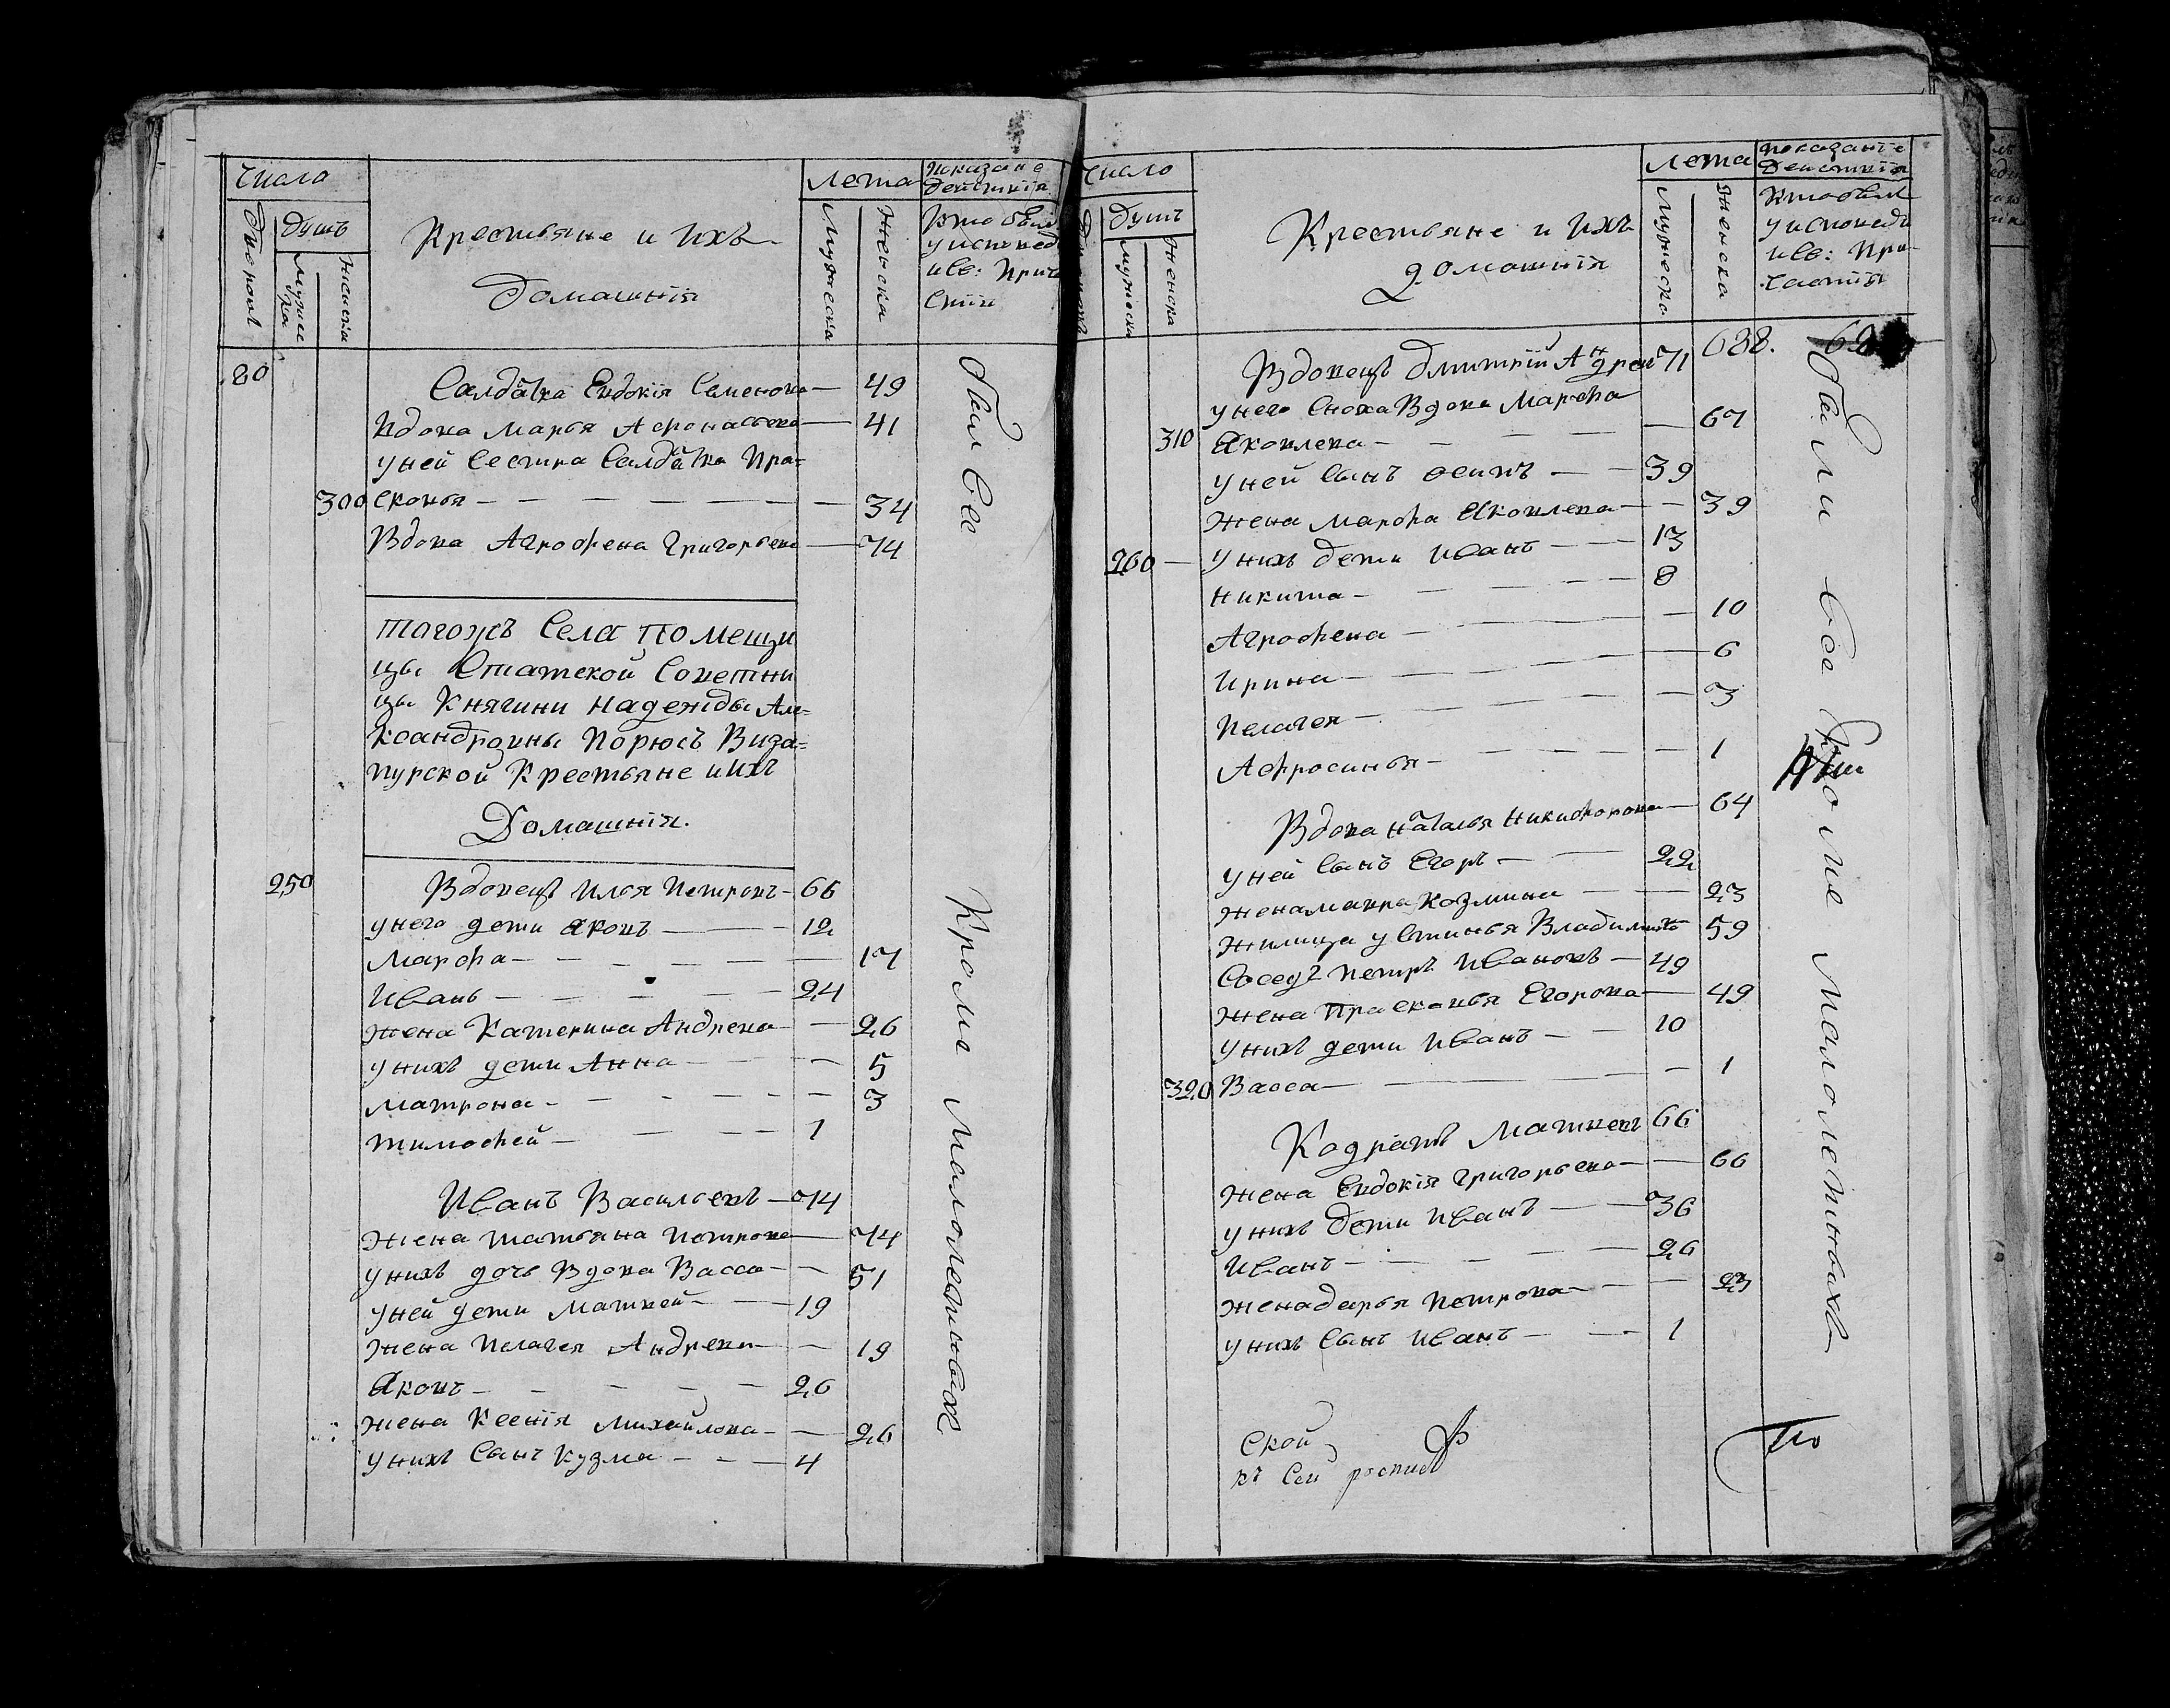 число
дворовъ
душъ
мужеска
женска
Крестьяне и ихъ
домашнiя
лета
мужеска
женска
показане
действiя
кто былъ
у исповед
и св: прича
стiи
80
Салдатка Евдокiя Семенова — 49
вдова Марья Афонасьева — 41
у ней сестра салдатка Пра=
300 сковья — 34
Вдова Агрофена Григорьева — 74
тагожъ села помещи
цы статской советни
цы княгини Надежды Але=
ксандровны Порюсъ Виза=
пурской крестьяне и ихъ
Домашнiя.
250 Вдовецъ Илья Петровъ — 66
у него дети Яковъ — 12
Марфа — 17
Иванъ — 24
жена Катерина Андрева — 26
у нихъ дети Анна — 5
Матрона — 3
Тимофей — 1
Иванъ Васильевъ — 74
жена Татьяна Петрова — 74
у нихъ дочь вдова Васса — 51
у ней дети Матвей — 19
жена Пелагея Андрева — 19
Яковъ — 26
жена Ксенiя Михайлова — 26
у нихъ сынъ Кузма — 4
были все
кроме малолетныхъ
число
душъ
мужеска
женска
Крестьяне и ихъ
домашнiя
лета
мужеска
женска
показанiе
действiя
кто былъ
у исповеди
и св: при-
частiя
688.
Вдовецъ Дмитрiй Андреевъ 71
у него сноха вдова Марфа
310 Яковлева — 67
у ней сынъ Осипъ — 39
жена Марфа Яковлева — 39
260 — у нихъ дети Иванъ — 13
Никита — 8
Агрофена — 10
Ирина — 6
Пелагея — 3
Афросинья — 1
Вдова Наталья Никифорова — 64
у ней сынъ Егоръ — 22
жена Мавра Козмина — 23
жилица Устинья Владимирова 59
соседъ Петръ Ивановъ — 49
жена Прасковья Егорова — 49
у нихъ дети Иванъ — 10
320 Васса — 1
Кодратъ Матвевъ 66
жена Евдокiя Григорьева — 66
у нихъ дети Иванъ — 36
Иванъ — 26
жена Дарья Петрова — 23
у нихъ сынъ Иванъ — 1
были все кроме малолетныхъ
ской
къ сей росписи
по